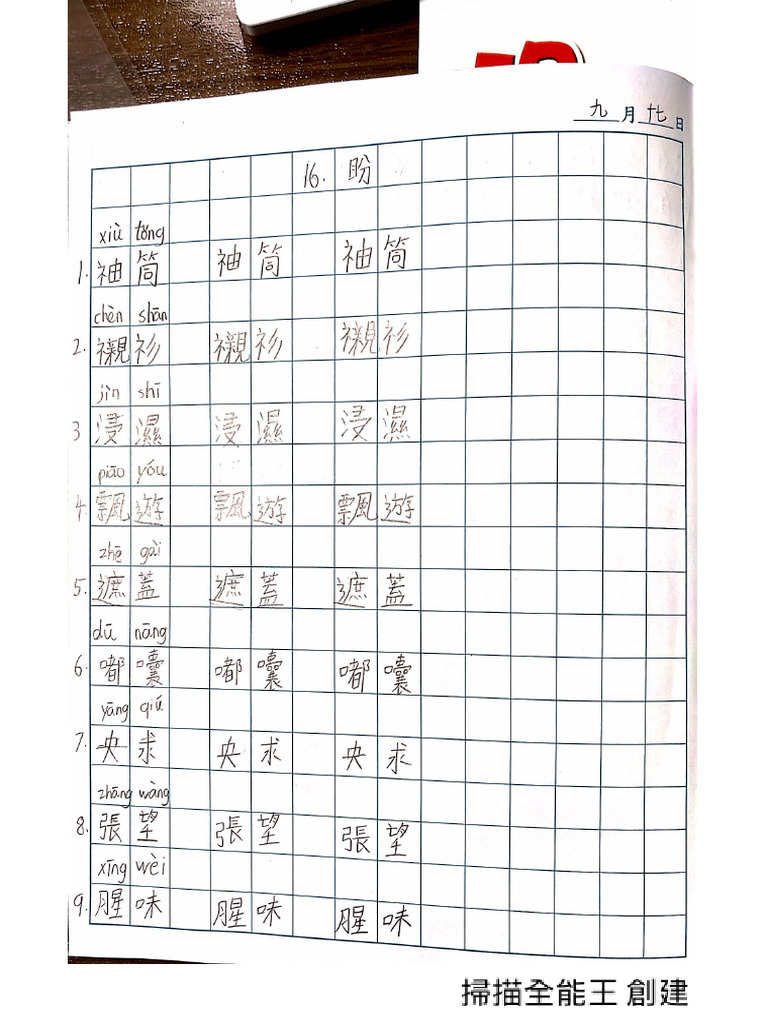 九月十七日
16. 盼
xiù tǒng
1. 袖筒 袖筒 袖筒
chèn shān
2. 襯衫 襯衫 襯衫
jìn shī
3 浸濕 浸濕 浸濕
piāo yóu
4. 飄遊 飄遊 飄遊
zhē gài
5. 遮蓋 遮蓋 遮蓋
dū nāng
6. 嘟囊 嘟囊 嘟囊
yāng qiú
7. 央求 央求 央求
zhāng wàng
8. 張望 張望 張望
xīng wèi
9. 腥味 腥味 腥味
掃描全能王 創建